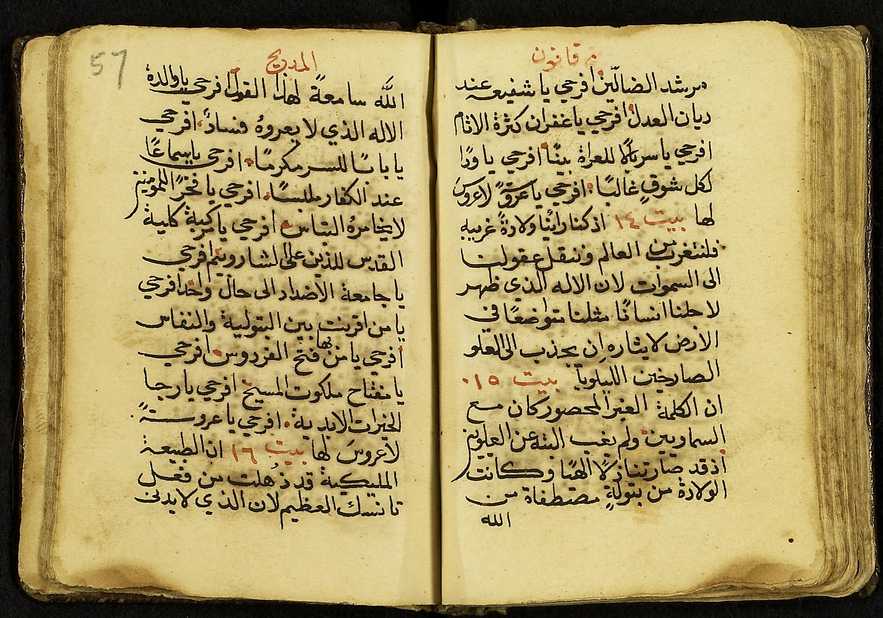 قانون
مرشد الضالّين افرحي يا شفيعه عند
ديان العدل افرحي يا غفران كثرة الاثام
افرحي يا سربالًا للعراة بينًا افرحي يا ودًا
لكل شوقٍ غالبًا افرحي يا عروسًا لا عروس
لها بيت ١٤ اذ كنا راينا ولادةً غريبه
فلنتغرب من العالم وننقل عقولنا
الى السموات لان الاله الذي ظهر
لاجلنا انسانًا مثلنا متواضعًا في
الارض لايثاره ان يجذب الى العلو
الصارخين الليلويا بيت ١٥
ان الكلمة الغير المحصور كان مع
السماويين ولم يغب البته عن العلويين
اذ قد صار تنازلًا الهيًا وكانت
الولادة من بتولةٍ مصطفاة من
الله
57
المديح
اللّه سامعةً لهذا القول افرحي يا والدة
الاله الذي لا يعروهُ فسادٌ افرحي
يا بابًا للسر مكرمًا افرحي يا سماعًا
عند الكفار ملبسًا افرحي يا فخرًا للمومنين
لا يخامرهُ التباس افرحي يا مركبة كلية
القدس للذين على الشاروبيم افرحي
يا جامعة الاضداد الى حال واحد افرحي
يا من اقرنت بين البتولية والنفاس
افرحي يا من بها فتح الفردوس افرحي
يا مفتاح ملكوت المسيح افرحي يا رجا
الخيرات الابدية افرحي يا عروسةً
لا عروسَ لها بيت ١٦ ان الطبيعة
المليكية قد ذُهلت من فعل
تانسك العظيم لان الذي لا يدنى